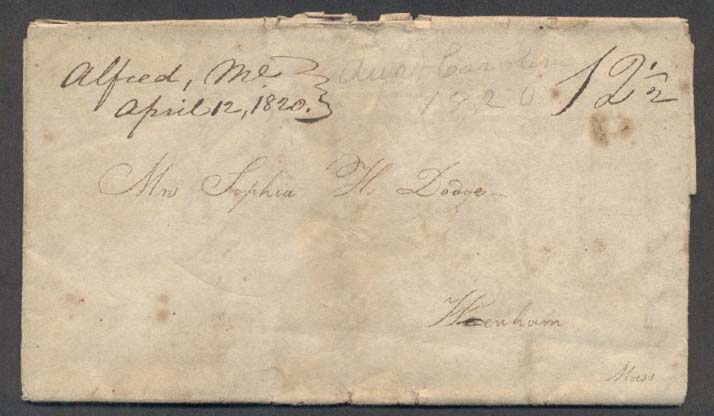 Alfred, Me. } Aunt Caroline 12 1/2
April 12, 1820. } 1820
Mrs Sophia H. Dodge
Wenham
Mass